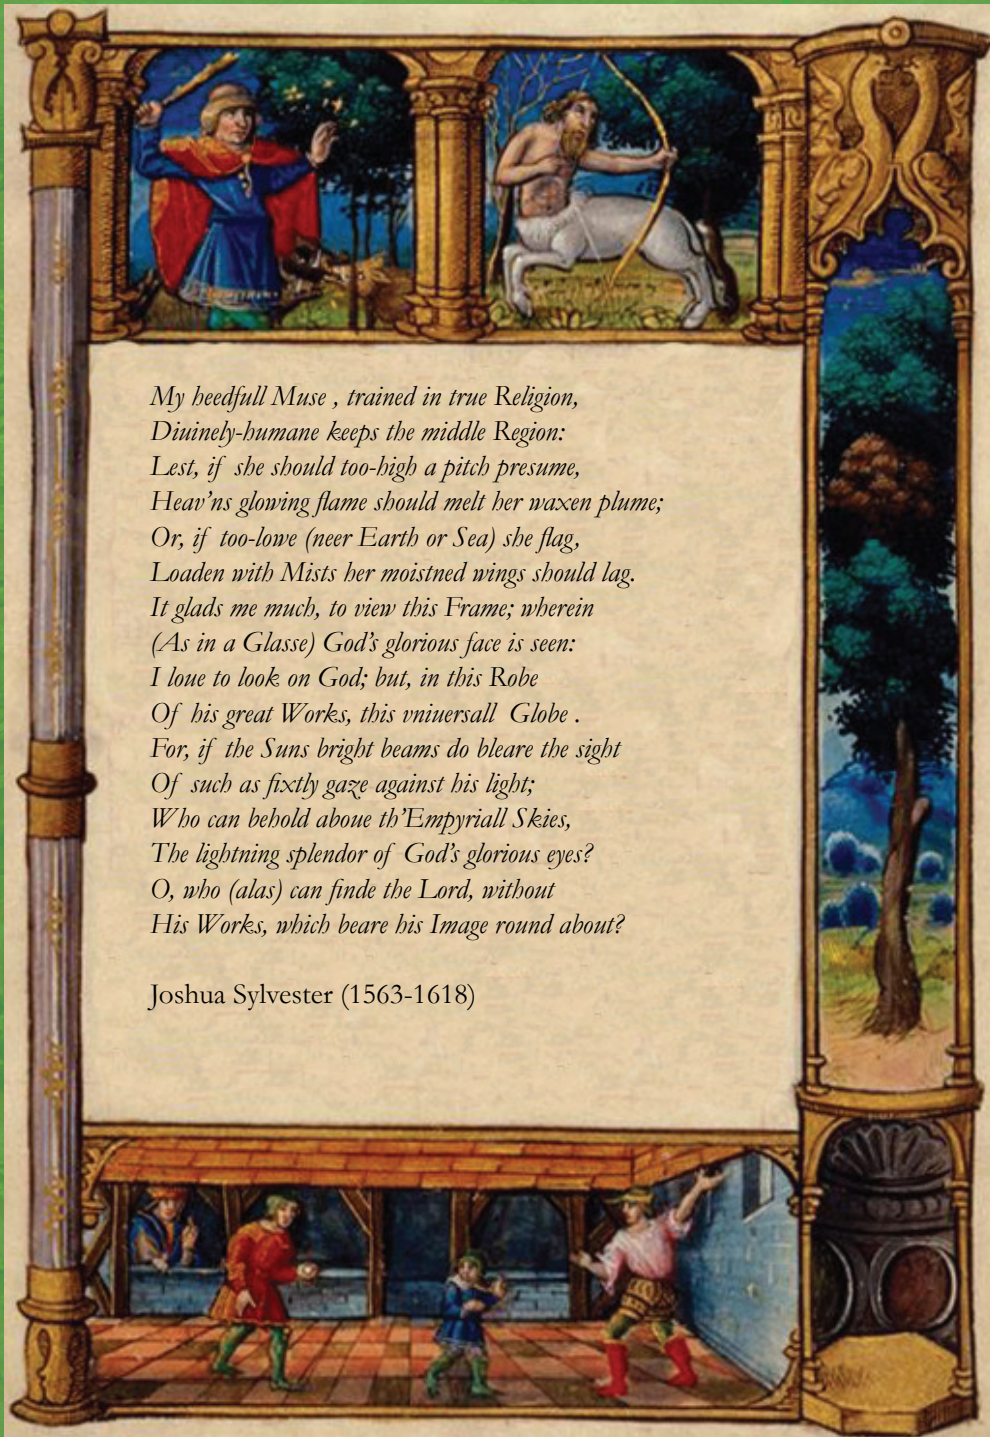 My heedfull Muse , trained in true Religion,
Diuinely-humane keeps the middle Region:
Lest, if she should too-high a pitch presume,
Heav'ns glowing flame should melt her waxen plume;
Or, if too-lowe (neer Earth or Sea) she flag,
Loaden with Mists her moistned wings should lag.
It glads me much, to view this Frame; wherein
(As in a Glasse) God's glorious face is seen:
I loue to look on God; but, in this Robe
Of his great Works, this vniuersall Globe .
For, if the Suns bright beams do bleare the sight
Of such as fixtly gaze against his light;
Who can behold aboue th'Empyriall Skies,
The lightning splendor of God's glorious eyes?
O, who (alas) can finde the Lord, without
His Works, which beare his Image round about?
Joshua Sylvester (1563-1618)